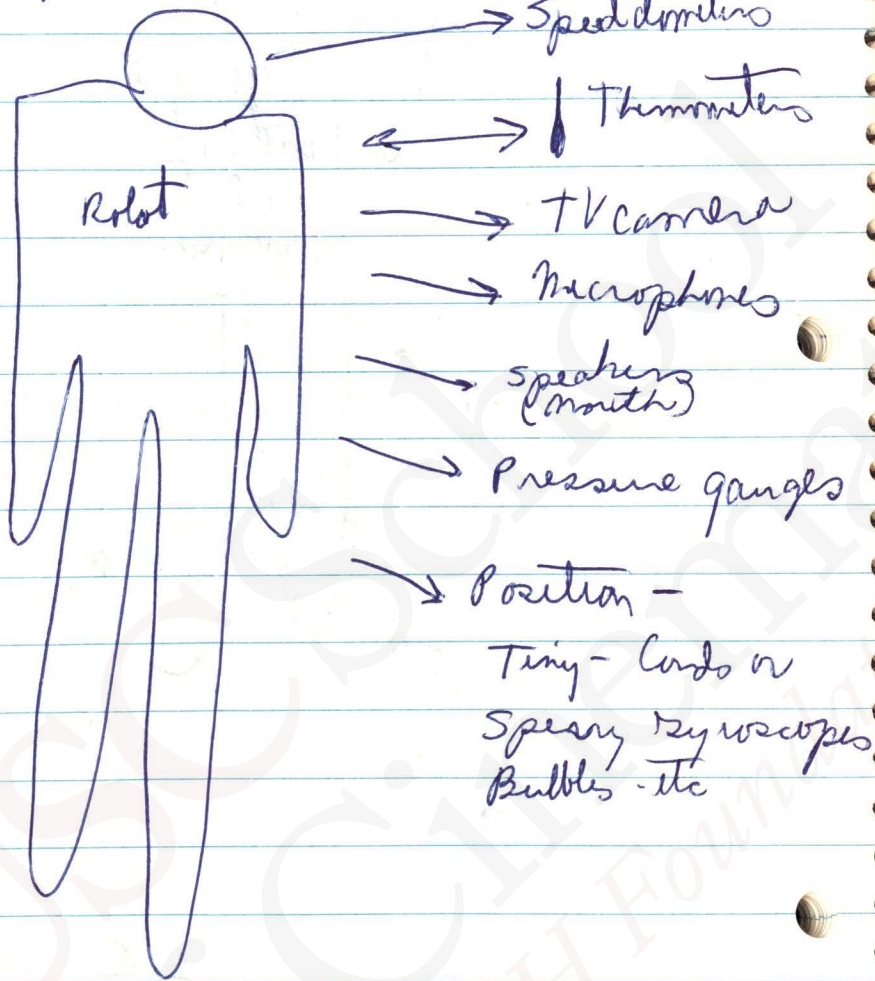 Speedometers
Thermometers
Robot
TV camera
Microphones
speakers
(mouth)
Pressure gauges
Position -
Tiny - Cords or
Sperry Gyroscopes
Bubbles - etc
SC School
Cinema
H Foundat